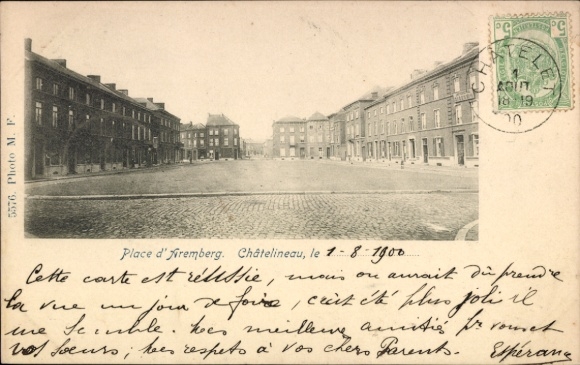 5
5
CHATELET
1
AOUT
18-19
00
5576. Photo M. F.
Place d'Aremberg. Châtelineau, le 1-8-1900
Cette carte est réussie, mais on aurait dû prendre
la vue un jour de foire, c'eut été plus joli il
me semble. Mes meilleures amitiés pr vous et
vos soeurs; mes respets à vos chers Parents. Espéran